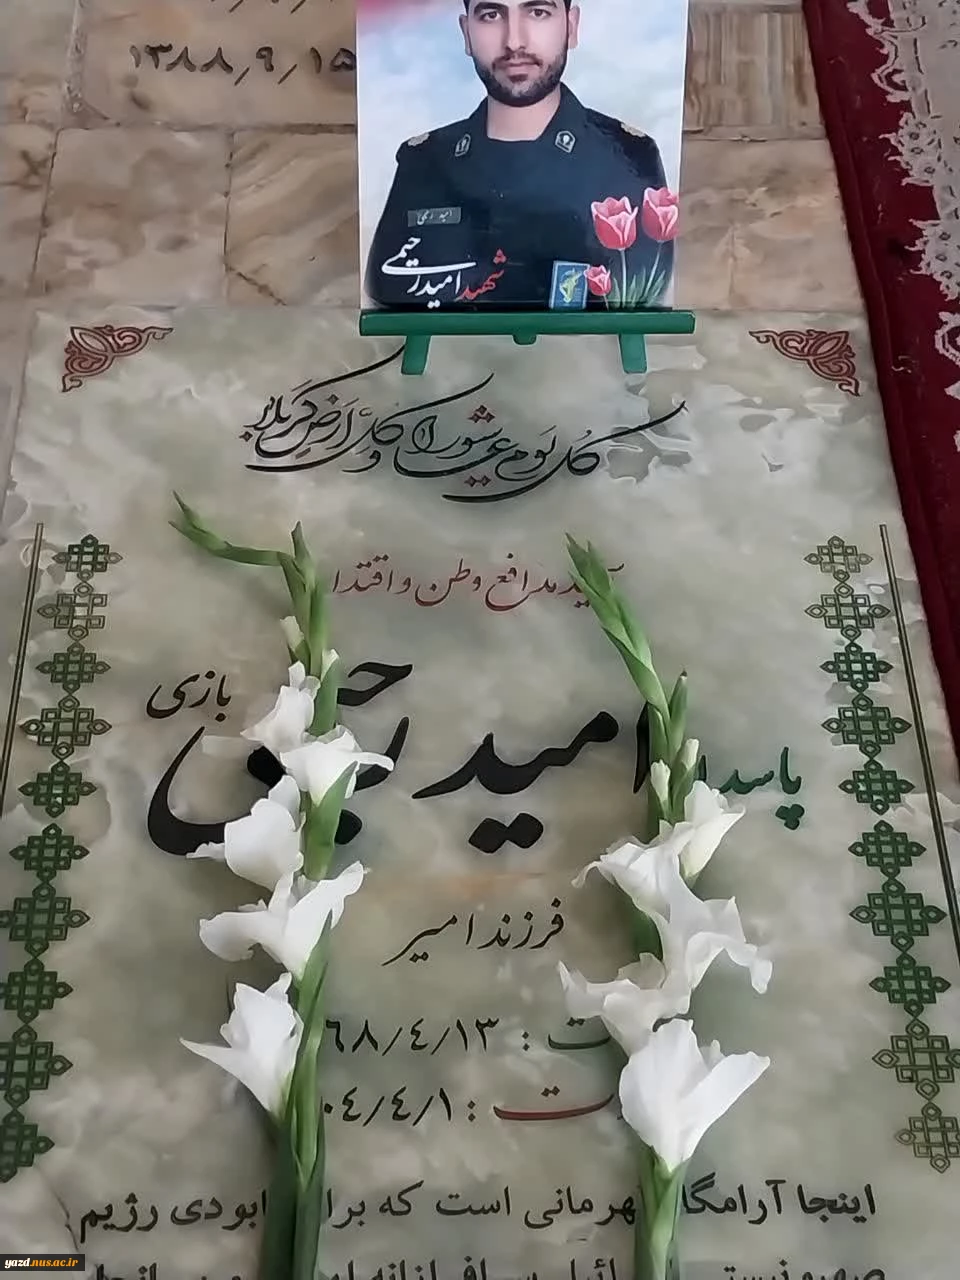 ۱۳۸۸/۹/۱۵
امید رحیمی
شهید امید رحیمی
کُل یَوم عاشورا و کُل اَرض کَربلا
مدافع وطن و اقتدا
پاسدار امید رحیمی بازی
فرزند امیر
ت : ۶۸/٤/۱۳
ت : ۰٤/٤/۱
اینجا آرامگاه قهرمانی است که برای نابودی رژیم
yazd.nus.ac.ir